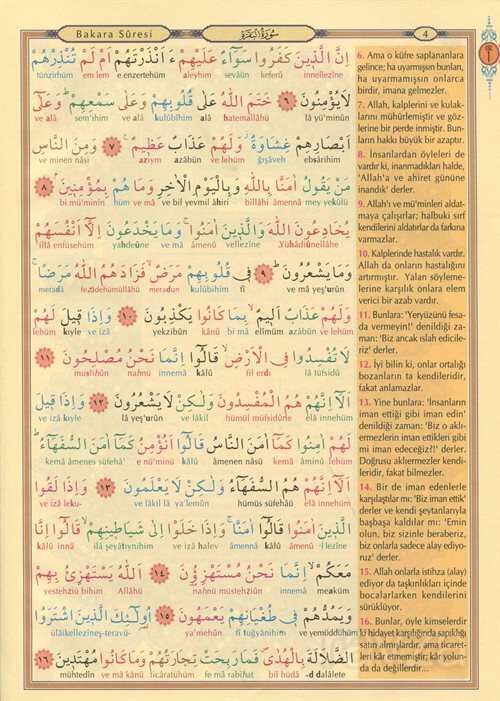 Bakara Sûresi
سُورَةُ الْبَقَرَةِ
4
اِنَّ الَّذِينَ كَفَرُوا سَوَٓاءٌ عَلَيْهِمْ ءَاَنْذَرْتَهُمْ اَمْ لَمْ تُنْذِرْهُمْ
innellezîne keferû sevâün aleyhim e enzertehüm em lem tünzirhüm
لَا يُؤْمِنُونَ ﴿٦﴾ خَتَمَ اللّٰهُ عَلٰى قُلُوبِهِمْ وَعَلٰى سَمْعِهِمْ وَعَلٰٓى
lâ yü'minûn hatemallâhü alâ kulûbihim ve alâ sem'ihim ve alâ
اَبْصَارِهِمْ غِشَاوَةٌ وَلَهُمْ عَذَابٌ عَظِيمٌ ﴿٧﴾ وَمِنَ النَّاسِ
ebsârihim ğışâveh ve lehüm azâbün azıym ve minen nâsi
مَنْ يَقُولُ اٰمَنَّا بِاللّٰهِ وَبِالْيَوْمِ الْاٰخِرِ وَمَا هُمْ بِمُؤْمِنِينَ ﴿٨﴾
mey yekûlü âmennâ billâhi ve bil yevmil âhiri ve mâ hüm bi mü'minîn
يُخَادِعُونَ اللّٰهَ وَالَّذِينَ اٰمَنُوا وَمَا يَخْدَعُونَ اِلَّٓا اَنْفُسَهُمْ
Yühâdiûnellâhe vellezîne âmenû ve mâ yahdeûne illâ enfüsehüm
وَمَا يَشْعُرُونَ ﴿٩﴾ فِى قُلُوبِهِمْ مَرَضٌ فَزَادَهُمُ اللّٰهُ مَرَضًا
ve mâ yeş'urûn fî kulûbihim meradun fezâdehümüllâhü meradâ
وَلَهُمْ عَذَابٌ اَلِيمٌ بِمَا كَانُوا يَكْذِبُونَ ﴿١٠﴾ وَاِذَا قِيلَ لَهُمْ
ve lehüm azâbün elîmüm bi mâ kânû yekzibûn ve izâ kıyle lehüm
لَا تُفْسِدُوا فِى الْاَرْضِ قَالُٓوا اِنَّمَا نَحْنُ مُصْلِحُونَ ﴿١١﴾
lâ tüfsidû fil erdı kâlû innemâ nahnü muslihûn
اَلَٓا اِنَّهُمْ هُمُ الْمُفْسِدُونَ وَلٰكِنْ لَا يَشْعُرُونَ ﴿١٢﴾ وَاِذَا قِيلَ
elâ innehüm hümül müfsidûne ve lâkil lâ yeş'urûn ve izâ kıyle
لَهُمْ اٰمِنُوا كَمَٓا اٰمَنَ النَّاسُ قَالُٓوا اَنُؤْمِنُ كَمَٓا اٰمَنَ السُّفَهَٓاءُ
lehüm âminû kemâ âmenen nâsü kâlû e nü'minü kemâ âmenes süfehâ'
اَلَٓا اِنَّهُمْ هُمُ السُّفَهَٓاءُ وَلٰكِنْ لَا يَعْلَمُونَ ﴿١٣﴾ وَاِذَا لَقُوا
elâ innehüm hümüs süfehâü ve lâkil lâ ya'lemûn ve izâ leku-
الَّذِينَ اٰمَنُوا قَالُٓوا اٰمَنَّا وَاِذَا خَلَوْا اِلٰى شَيَاطِينِهِمْ قَالُٓوا اِنَّا
'l lezîne âmenû kâlû âmennâ ve izâ halev ilâ şeyâtıynihim kâlû innâ
مَعَكُمْ اِنَّمَا نَحْنُ مُسْتَهْزِؤُنَ ﴿١٤﴾ اَللّٰهُ يَسْتَهْزِئُ بِهِمْ
meaküm innemâ nahnü müstehziûn Allâhü yestehziü bihim
وَيَمُدُّهُمْ فِى طُغْيَانِهِمْ يَعْمَهُونَ ﴿١٥﴾ اُو۬لٰٓئِكَ الَّذِينَ اشْتَرَوُا
ve yemüddühüm fî tuğyânihim ya'mehûn ülâikellezîneş-teravü-
الضَّلَالَةَ بِالْهُدٰى فَمَا رَبِحَتْ تِجَارَتُهُمْ وَمَا كَانُوا مُهْتَدِينَ ﴿١٦﴾
-d dalâlete bil hüdâ fe mâ rabihat ticâratühüm ve mâ kânû mühtedîn
6. Ama o küfre saplananlara
gelince; ha uyarmışsın bunları,
ha uyarmamışsın onlarca
birdir, imana gelmezler.
7. Allah, kalplerini ve kulak-
larını mühürlemiştir ve göz-
lerine bir perde inmiştir. Bun-
ların hakkı büyük bir azaptır.
8. İnsanlardan öyleleri de
vardır ki, inanmadıkları halde,
'Allah'a ve ahiret gününe
inandık' derler.
9. Allah'ı ve mü'minleri aldat-
maya çalışırlar; halbuki sırf
kendilerini aldatırlar da farkına
varmazlar.
10. Kalplerinde hastalık vardır.
Allah da onların hastalığını
artırmıştır. Yalan söyleme-
lerine karşılık onlara elem
verici bir azab vardır.
11. Bunlara: 'Yeryüzünü fesa-
da vermeyin!' denildiği za-
man: 'Biz ancak ıslah edicile-
riz' derler.
12. İyi bilin ki, onlar ortalığı
bozanların ta kendileridir,
fakat anlamazlar.
13. Yine bunlara: 'İnsanların
iman ettiği gibi iman edin'
denildiği zaman: 'Biz o aklı-
ermezlerin iman ettikleri gibi
mi iman edeceğiz?!' derler.
Doğrusu aklıermezler kendi-
leridir, fakat bilmezler.
14. Bir de iman edenlerle
karşılaştılar mı: 'Biz iman ettik'
derler ve kendi şeytanlarıyla
başbaşa kaldılar mı: 'Emin
olun, biz sizinle beraberiz,
biz onlarla sadece alay ediyo-
ruz' derler.
15. Allah onlarla istihza (alay)
ediyor da taşkınlıkları içinde
bocalarlarken kendilerini
sürüklüyor.
16. Bunlar, öyle kimselerdir
ki hidayet karşılığında sapıklığı
satın almışlardır, ama ticaret-
leri kâr etmemiştir; kâr yolun-
da da değillerdir...